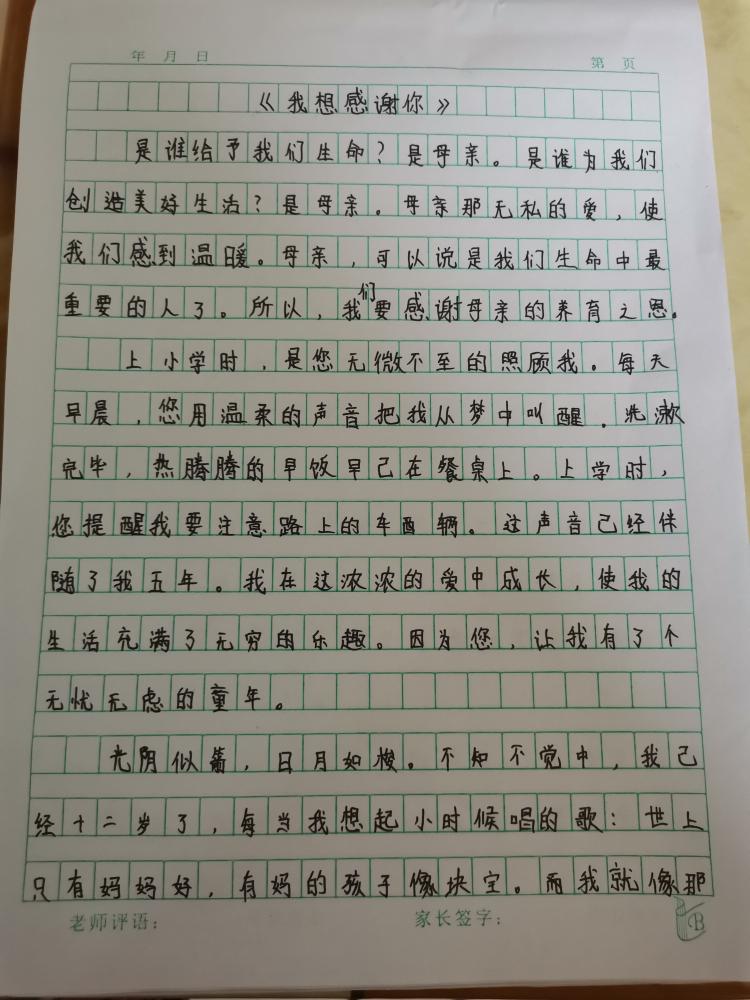 年 月 日
第 页
《我想感谢你》
是谁给予我们生命？是母亲。是谁为我们
创造美好生活？是母亲。母亲那无私的爱，使
我们感到温暖。母亲，可以说是我们生命中最
重要的人了。所以，我们要感谢母亲的养育之恩。
上小学时，是您无微不至的照顾我。每天
早晨，您用温柔的声音把我从梦中叫醒。洗漱
完毕，热腾腾的早饭早己在餐桌上。上学时，
您提醒我要注意路上的车辆。这声音己经伴
随了我五年。我在这浓浓的爱中成长，使我的
生活充满了无穷的乐趣。因为您，让我有了个
无忧无虑的童年。
光阴似箭，日月如梭。不知不觉中，我己
经十二岁了，每当我想起小时候唱的歌：世上
只有妈妈好，有妈的孩子像块宝。而我就像那
老师评语：
家长签字：
B